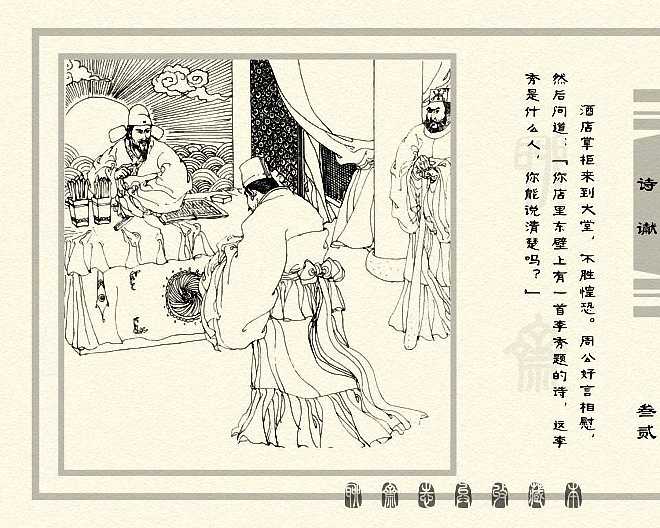 酒店掌柜来到大堂，不胜惶恐。周公好言相慰，
然后问道：「你店里东壁上有一首李秀题的诗，这李
秀是什么人，你能说清楚吗？」
诗谳
叁贰